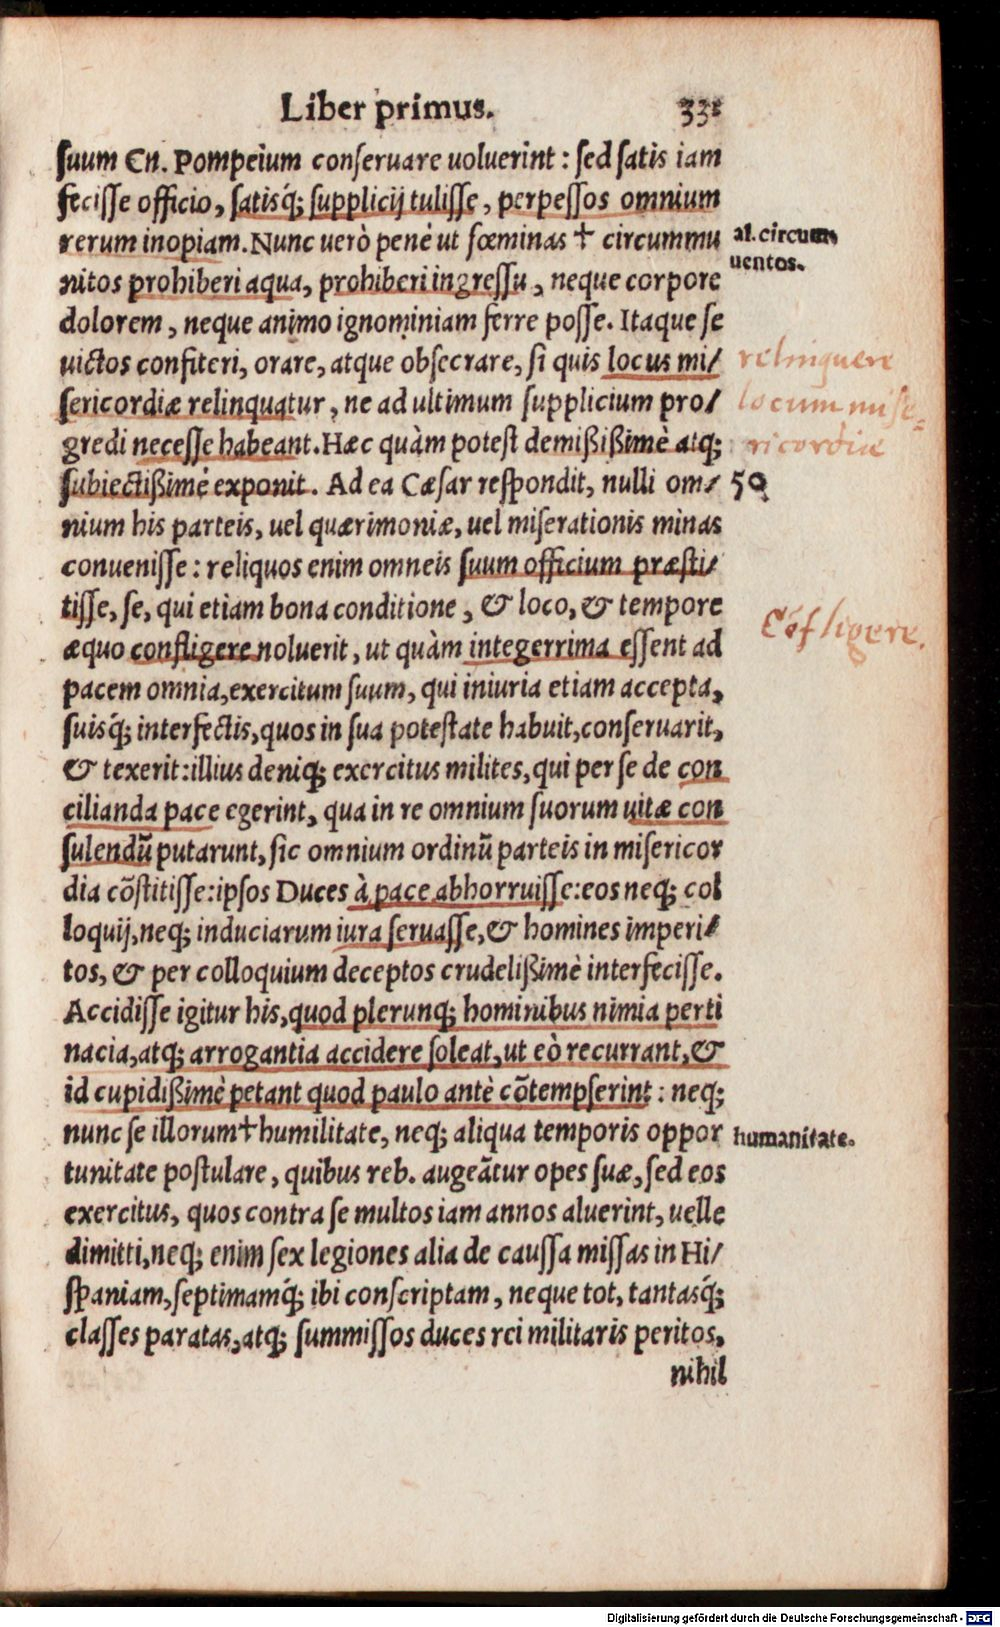 Liber primus. 331
suum Cn. Pompeium conseruare uoluerint: sed satis iam
fecisse officio, satisq́; supplicij tulisse, perpessos omnium
rerum inopiam. Nunc uerò penè ut fœminas † circummu
al. circum
uentos.
nitos prohiberi aqua, prohiberi ingressu, neque corpore
dolorem, neque animo ignominiam ferre posse. Itaque se
uictos confiteri, orare, atque obsecrare, si quis locus mi/
relinquere
sericordiæ relinquatur, ne ad ultimum supplicium pro/
locum mise=
gredi necesse habeant. Hæc quàm potest demißißimè atq;
ricordiæ
subiectißimè exponit. Ad ea Cæsar respondit, nulli om/
50
nium his parteis, uel quærimoniæ, uel miserationis minas
conuenisse: reliquos enim omneis suum officium præsti/
tisse, se, qui etiam bona conditione, & loco, & tempore
Cōfligere.
æquo confligere noluerit, ut quàm integerrima essent ad
pacem omnia, exercitum suum, qui iniuria etiam accepta,
suisq́; interfectis, quos in sua potestate habuit, conseruarit,
& texerit: illius deniq; exercitus milites, qui per se de con
cilianda pace egerint, qua in re omnium suorum uitæ con
sulendũ putarunt, sic omnium ordinũ parteis in misericor
dia cõstitisse: ipsos Duces à pace abhorruisse: eos neq; col
loquij, neq; induciarum iura seruasse, & homines imperi/
tos, & per colloquium deceptos crudelißimè interfecisse.
Accidisse igitur his, quod plerunq; hominibus nimia perti
nacia, atq; arrogantia accidere soleat, ut eò recurrant, &
id cupidißimè petant quod paulo antè cõtempserint: neq;
nunc se illorum † humilitate, neq; aliqua temporis oppor
humanitate.
tunitate postulare, quibus reb. augeãtur opes suæ, sed eos
exercitus, quos contra se multos iam annos aluerint, uelle
dimitti, neq; enim sex legiones alia de caussa missas in Hi/
spaniam, septimamq́; ibi conscriptam, neque tot, tantasq́;
classes paratas, atq; summissos duces rei militaris peritos,
nihil
Digitalisierung gefördert durch die Deutsche Forschungsgemeinschaft - DFG